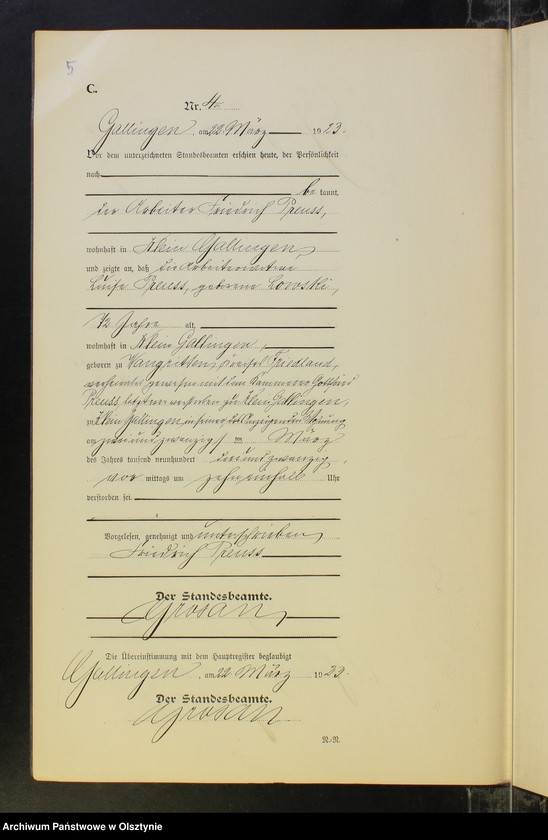 5
C.
Nr. 4
Gallingen, am 22. März 1923.
Vor dem unterzeichneten Standesbeamten erschien heute, der Persönlichkeit
nach
be kannt,
der Arbeiter Friedrich Preuss,
wohnhaft in Klein Gallingen,
und zeigte an, daß die Arbeiterwitwe
Luise Preuss, geborene Lowski,
72 Jahre alt,
wohnhaft in Klein Gallingen,
geboren zu Wangritten, Kreises Friedland,
verheiratet gewesen mit dem Kämmerer Gottfried
Preuss, letzterer verstorben zu Klein Gallingen,
zu Klein Gallingen, in seiner des Anzeigenden Wohnung
am zweiundzwanzigsten März
des Jahres tausend neunhundert dreiundzwanzig
vor mittags um zehneinhalb Uhr
verstorben sei.
Vorgelesen, genehmigt und unterschrieben
Friedrich Preuss
Der Standesbeamte.
Grosan
Die Übereinstimmung mit dem Hauptregister beglaubigt
Gallingen, am 22. März 1923.
Der Standesbeamte.
Grosan
N.-R.
Archiwum Państwowe w Olsztynie